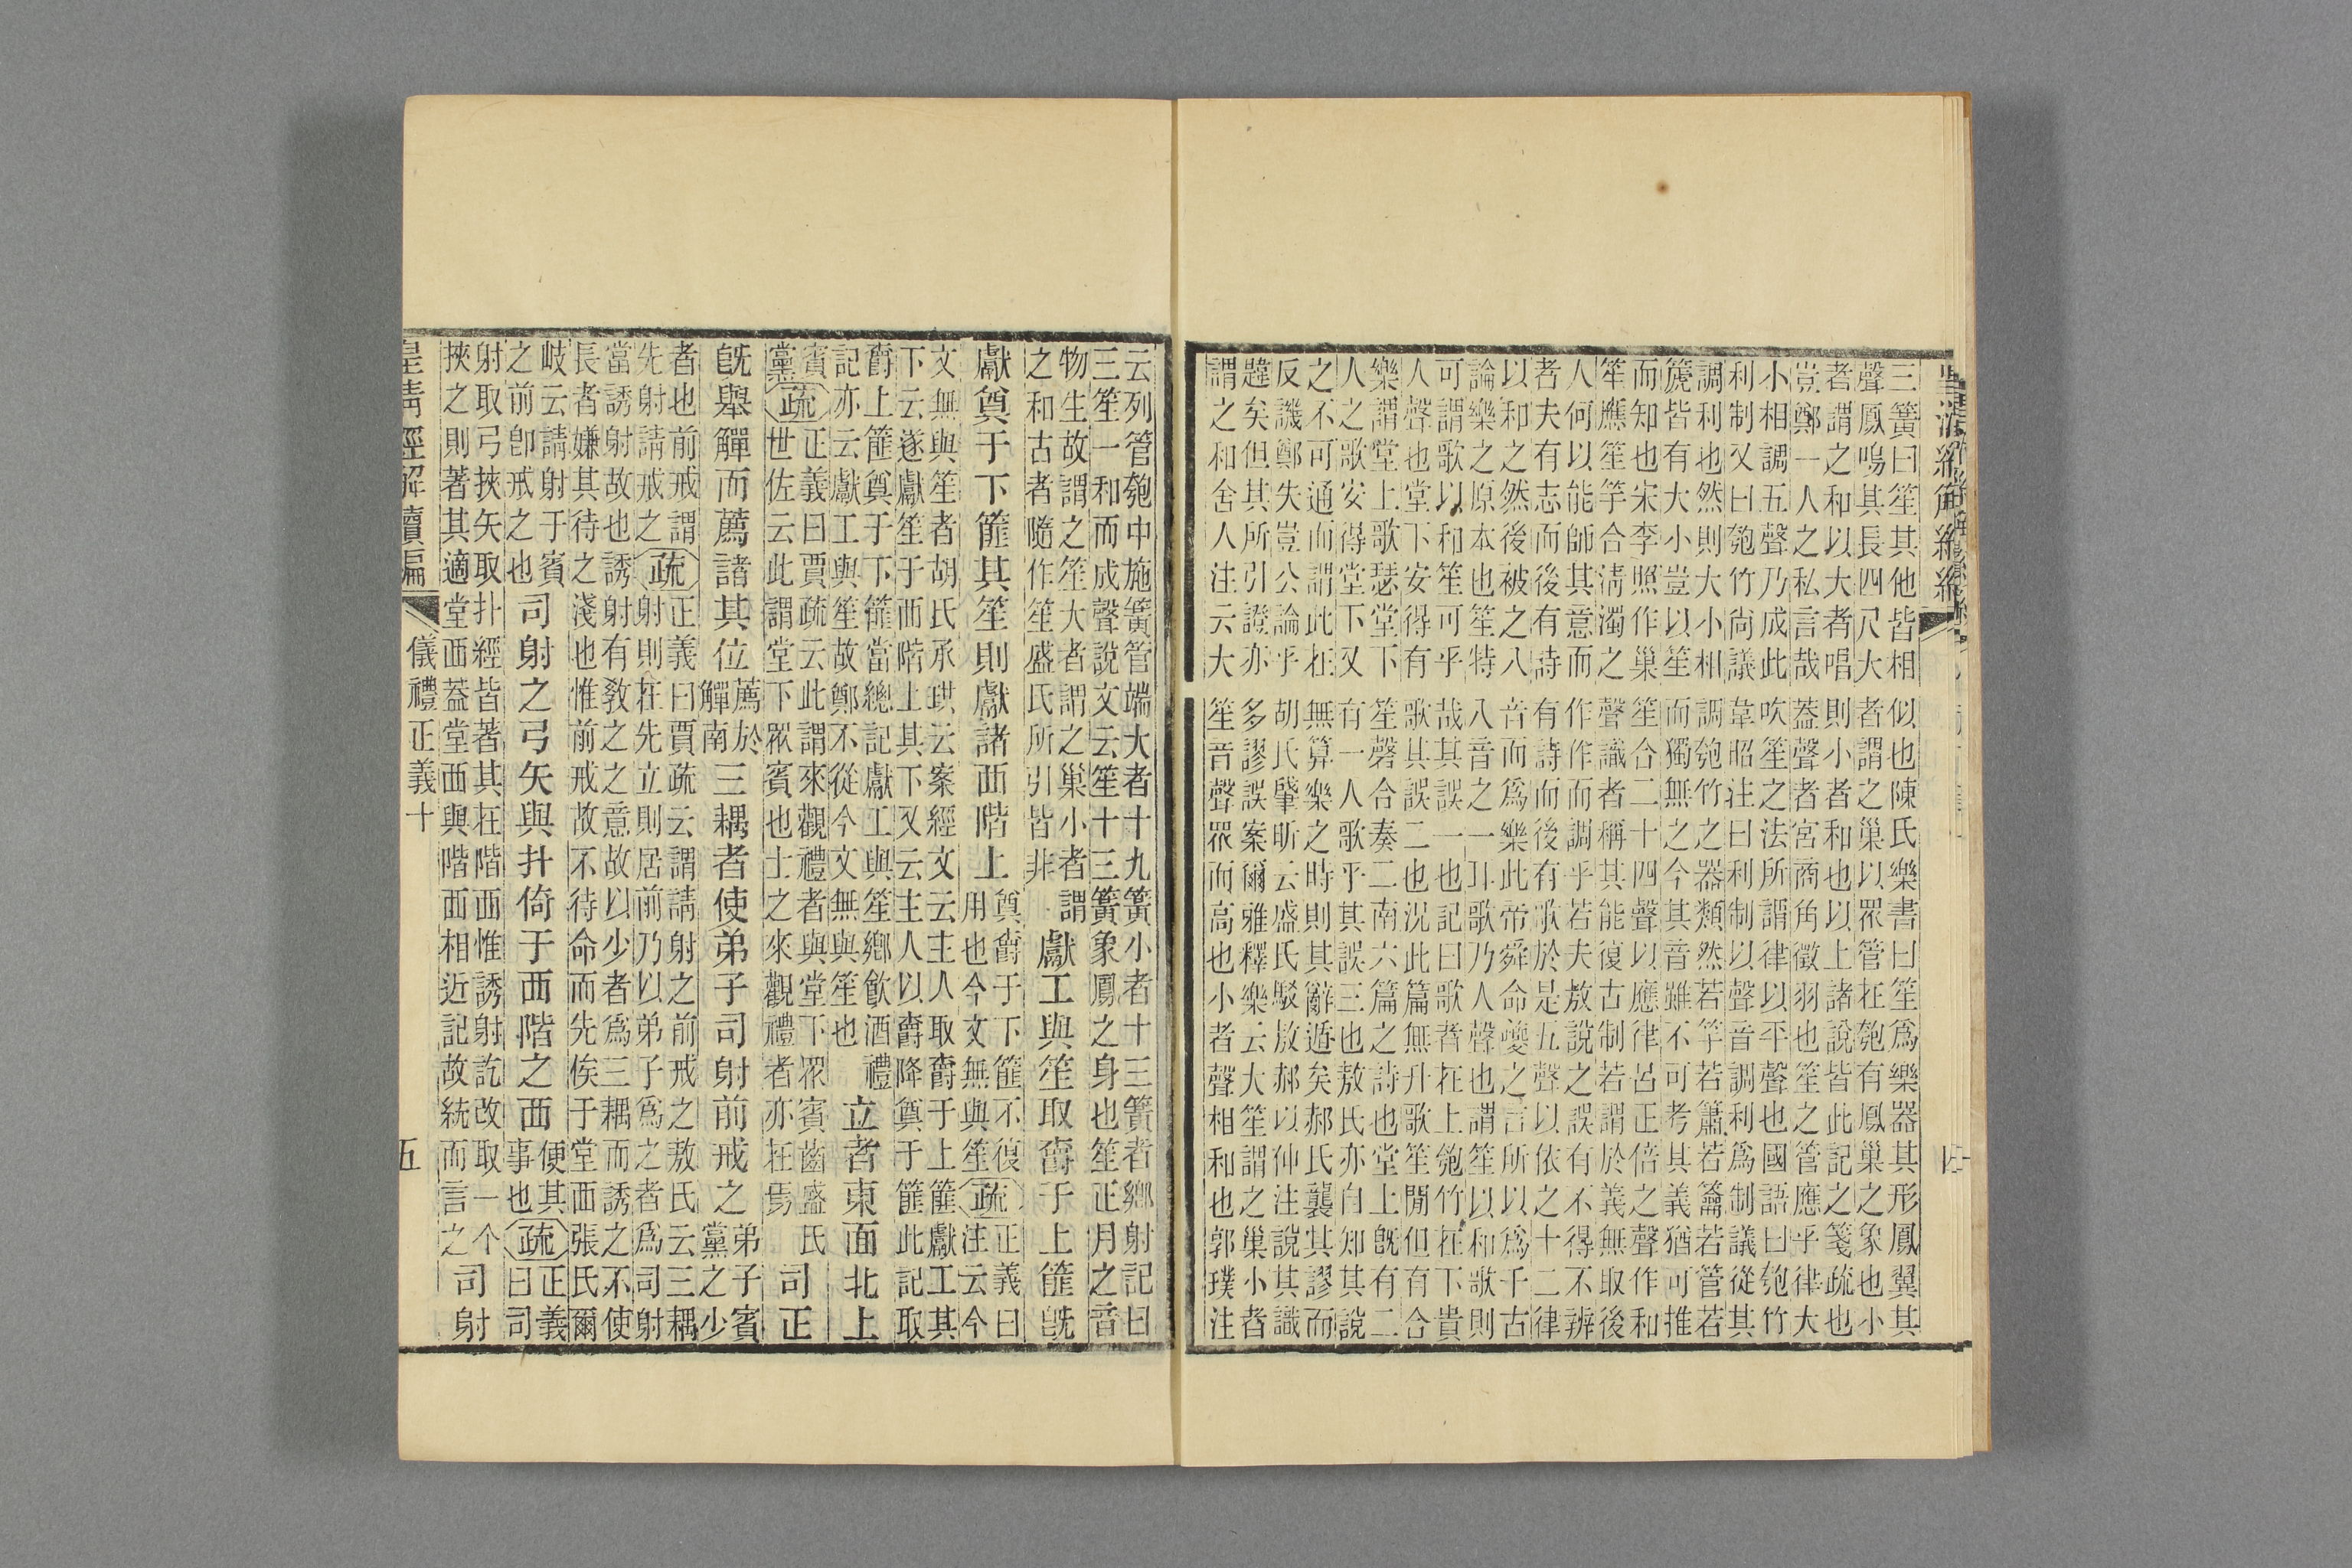 三簧曰笙其他皆相似也陳氏樂書曰笙爲樂器其形鳳翼其
聲鳳鳴其長四尺大者謂之巢以眾管在匏有鳳巢之象也小
者謂之和以大者唱則小者和也以上諸說皆此記之箋疏也
豈鄭一人之私言哉蓋聲者宮商角徵羽也笙之管應乎律大
小相調五聲乃成此吹笙之法所謂律以平聲也國語曰匏竹
利制又曰匏竹尚議韋昭注曰利制以聲音調利爲制議從其
調利也然則大小相調匏竹之器類然若竽若簫若籥若管若
篪皆有大小豈以笙而獨無之今其音雖不可考其義猶可推
而知也宋李照作巢笙合二十四聲以應律呂正倍之聲作和
笙應笙竽合清濁之聲識者稱其能復古制若謂於義無取後
人何以能師其意而作作而調乎若夫敖說之誤有不得不辨
者夫有志而後有詩有詩而後有歌於是五聲以依之十二律
以和之然後被之八音而爲樂此帝舜命夔之言所以爲千古
論樂之原本也笙特八音之一耳歌乃人聲也謂笙以和歌則
可謂歌以和笙可乎哉其誤一也記曰歌者在上匏竹在下貴
人聲也堂下安得有歌其誤二也況此篇無升歌笙閒但有合
樂謂堂上歌瑟堂下笙磬合奏二南六篇之詩也堂上既有二
人之歌安得堂下又有一人歌乎其誤三也敖氏亦自知其說
之不可通而謂此在無算樂之時則其辭遁矣郝氏襲其謬而
反譏鄭失豈公論乎胡氏肇昕云盛氏駁敖郝以伸注說其識
韙矣但其所引證亦多謬誤案爾雅釋樂云大笙謂之巢小者
謂之和舍人注云大笙音聲眾而高也小者聲相和也郭璞注
云列管匏中施簧管端大者十九簧小者十三簧者鄉射記曰
三笙一和而成聲說文云笙十三簧象鳳之身也笙正月之音
物生故謂之笙大者謂之巢小者謂
之和古者隨作笙盛氏所引皆非
獻工與笙取爵于上篚既
獻奠于下篚其笙則獻諸西階上
奠爵于下篚不復
用也今文無與笙
疏
正義曰
注云今
文無與笙者胡氏承珙云案經文云主人取爵于上篚獻工其
下云遂獻笙于西階上其下又云主人以爵降奠于篚此記取
爵上篚奠于下篚當總記獻工與笙鄉飲酒禮
記亦云獻工與笙故鄭不從今文無與笙也
立者東面北上
賓
黨
疏
正義曰賈疏云此謂來觀禮者與堂下眾賓齒盛氏
世佐云此謂堂下眾賓也士之來觀禮者亦在焉
司正
既舉觶而薦諸其位
薦於
觶南
三耦者使弟子司射前戒之
弟子賓
黨之少
者也前戒謂
先射請戒之
疏
正義曰賈疏云謂請射之前戒之敖氏云三耦
射則在先立則居前乃以弟子爲之者爲司射
當誘射故也誘射有教之之意故以少者爲三耦而誘之不使
長者嫌其待之淺也惟前戒故不待命而先俟于堂西張氏爾
岐云請射于賓
之前卽戒之也
司射之弓矢與扑倚于西階之西
便其
事也
疏
正義
曰司
射取弓挾矢取扑經皆著其在階西惟誘射訖改取一个
挾之則著其適堂西蓋堂西與階西相近記故統而言之
司射
皇清經解續編
儀禮正義十
五